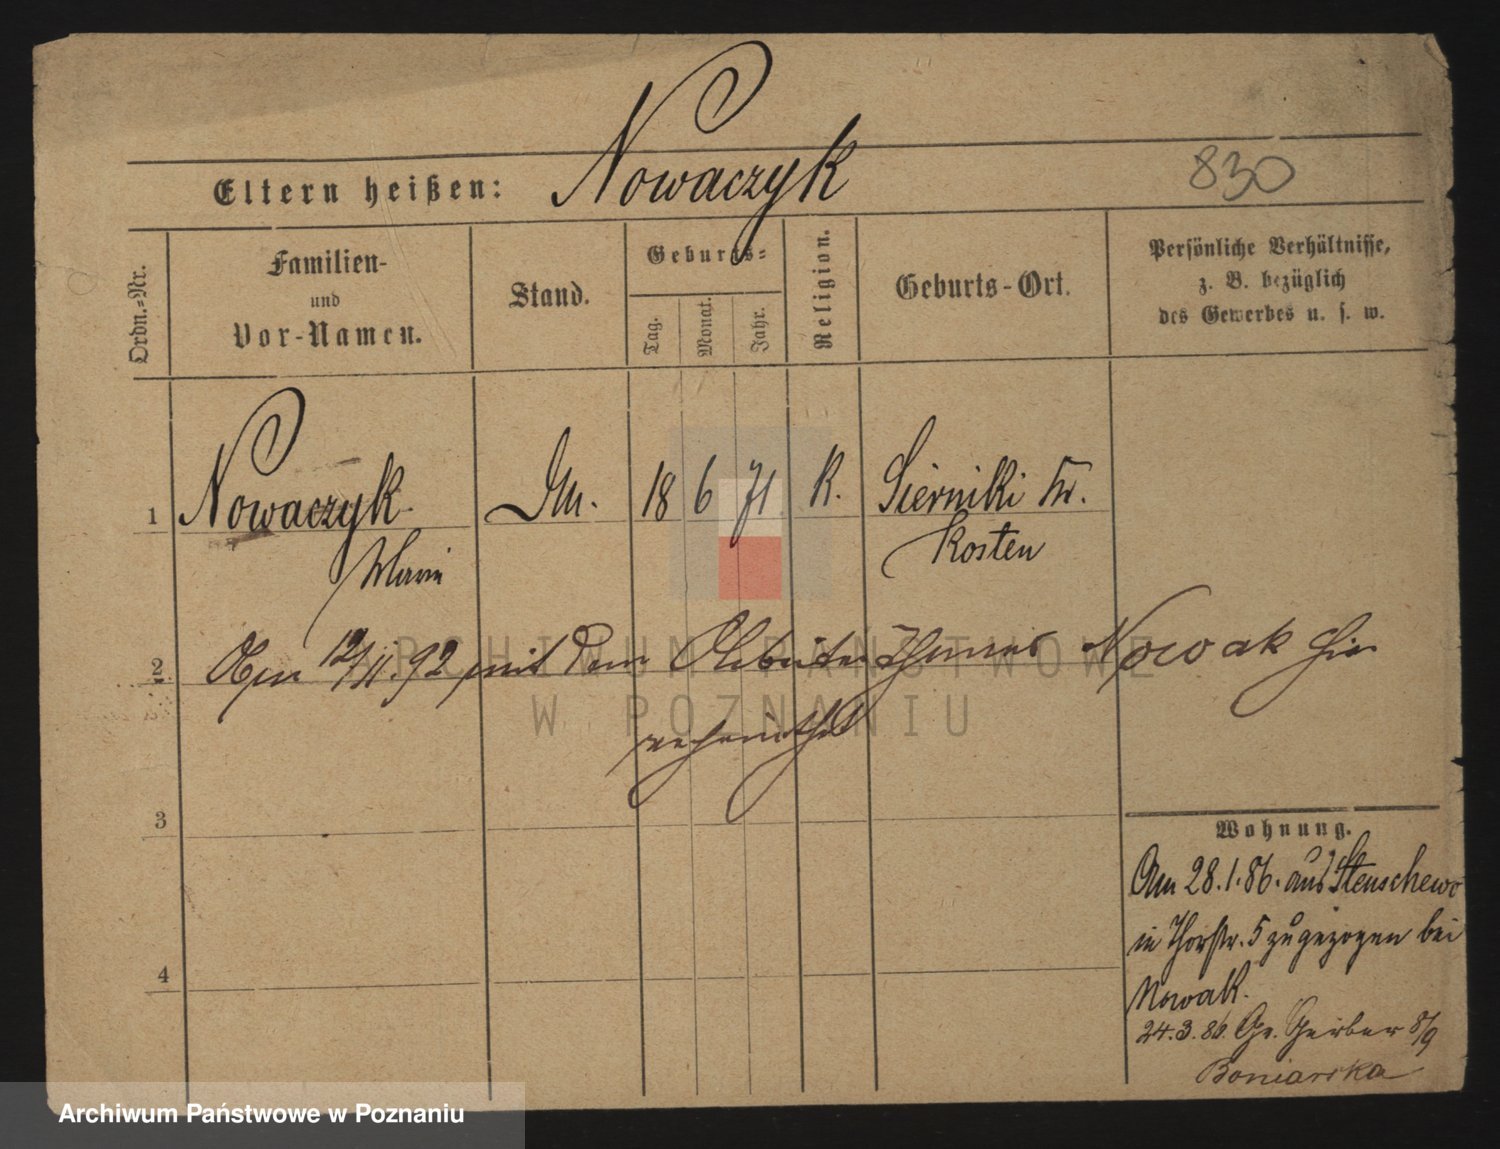 Nowaczyk
830
Eltern heißen:
Ordn.-Nr.
Familien-
und
Vor-Namen.
Stand.
Geburts-
Tag.
Monat.
Jahr.
Religion.
Geburts-Ort.
Persönliche Verhältnisse,
z. B. bezüglich
des Gewerbes u. s. w.
1 Nowaczyk Dm. 18 6 71 K. Sierniki Kr.
Marie Kosten
2 12/11.92 mit dem Arbeiter Thomas Nowak hier
verheirathet
ARCHIWUM PAŃSTWOWE
W POZNANIU
3
4
Wohnung.
Am 28.1.86. aus Stenschewo
in Thorstr. 5 zugezogen bei
Nowak.
24.3.86. Gr. Gerber 8/9
Boniarska
Archiwum Państwowe w Poznaniu